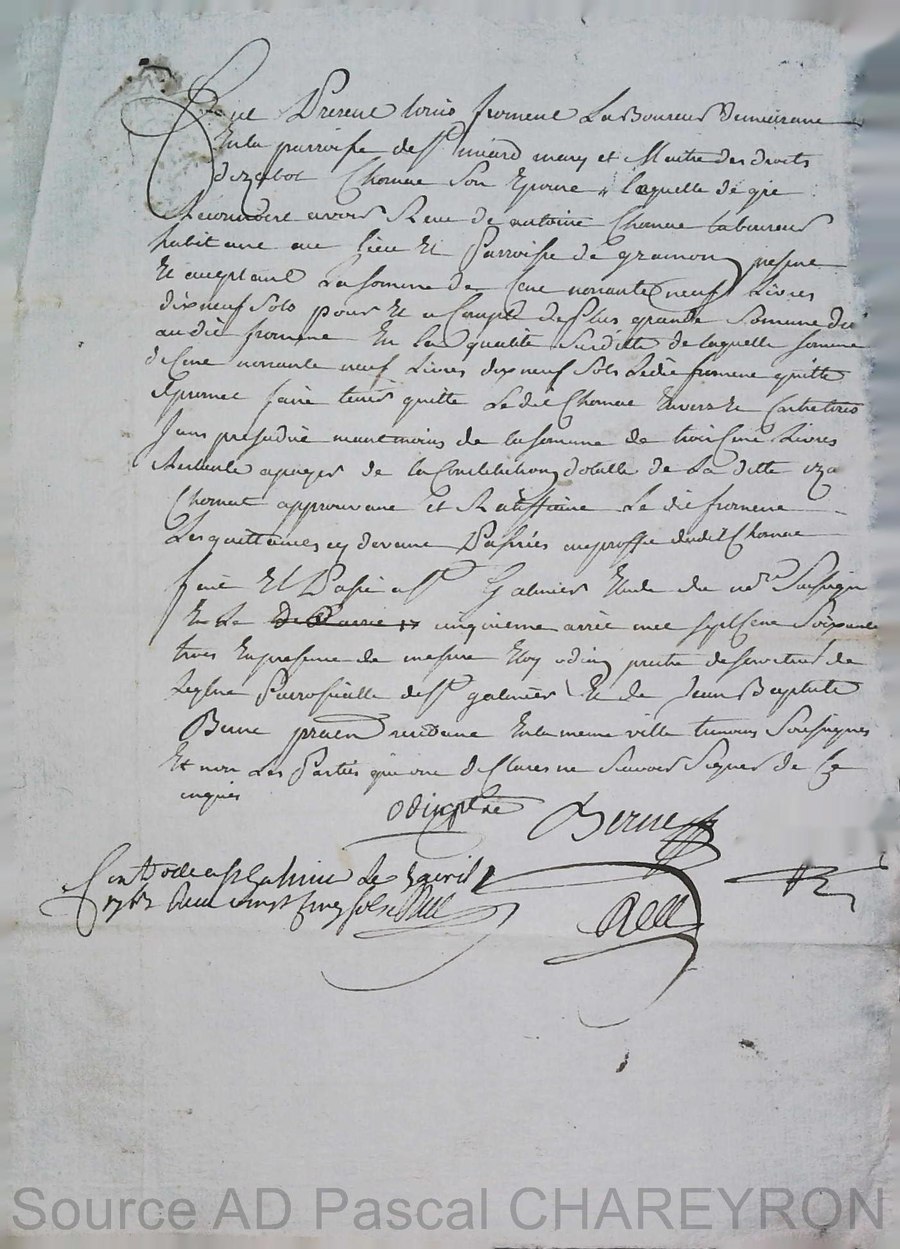 fut Present Louis froment Laboureur demeurant
En la parroisse de St miard mary et Maitre des droits
d'izabot Chomat Son Epouse, laquelle de gré
Reconnoit avoir Reçu de antoine Chomat laboureur
habitant au Lieu Et Parroisse de gramon present
Et aceptant La somme de Cent nonante neuf Livres
dix neuf Sols pour Et a Compte de Plus grande Somme due
audit froment En La qualité Susditte de laquelle somme
de Cent nonante neuf Livres dix neuf Sols Ledit froment quitte
Et promet faire tenir quitte Ledit Chomat Envers Et Contre tous
Sans prejudice neantmoins de la somme de trois Cent Livres
Restante a payer de la Constitution dotalle de La ditte iza
Chomat approuvant Et Ratiffiant Le dit froment
Les quittances cy devant Passées au proffit dudit Chomat
fait Et Passé a St Galmier Etude du nore Soussigné
Et Le cinquieme avril mil sept Cent Soixante
trois En presence de messire Eloy odin pretre deserviteur de
Leglise Parrossialle de St galmier Et de Jean Baptiste
Berne praen residant En la meme ville temoins Soussignés
Et non Les Parties qui ont declarés ne Scavoir Signer de Ce
enquis
odin ptre Berne
Contrôlé a St Galmier Le 5 avril
1763 Reçu vingt Cinq sols
Source AD Pascal CHAREYRON